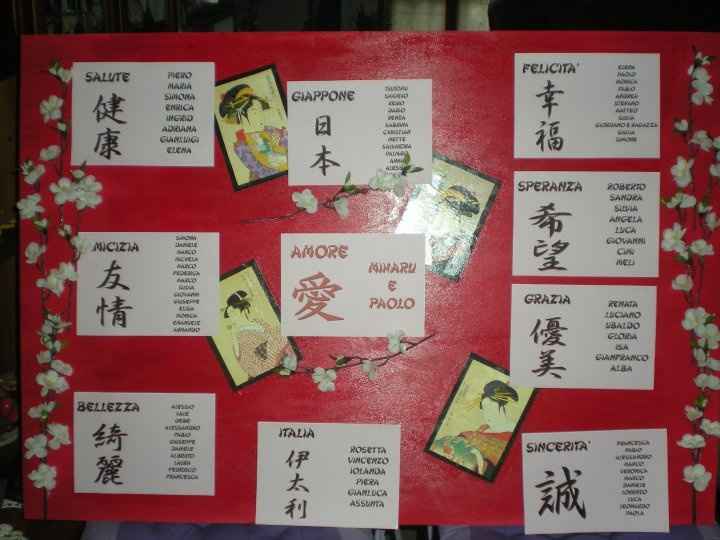 SALUTE
健康
PIERO
MARIA
SIMONA
ENRICA
INGRID
ADRIANA
GIANLUIGI
ELENA
GIAPPONE
日本
DARIO
RENZA
SABRINA
CHRISTIAN
METTE
FELICITA'
幸福
ELENA
PAOLO
MONICA
FABIO
ANDREA
STEFANO
MATTEO
GIULIA
GIORDANO E RAGAZZA
SIMONE
SPERANZA
希望
ROBERTO
SANDRA
SILVIA
ANGELA
LUCA
GIOVANNI
CIRI
MELI
MICIZIA
友情
SIMONA
DANIELE
MARCO
MICHELA
MARCO
FEDERICA
MARCO
GIULIA
GIOVANNI
GIUSEPPE
ELISA
MONICA
EMANUELE
ARMANDO
AMORE
愛
MIHARU
E
PAOLO
GRAZIA
優美
RENATA
LUCIANO
UBALDO
GLORIA
ISA
GIANFRANCO
ALBA
BELLEZZA
綺麗
ALESSIO
ALESSANDRO
FABIO
GIUSEPPE
DANIELE
ALBERTO
LAURA
FEDERICO
FRANCESCA
ITALIA
伊太利
ROSETTA
VINCENZO
IOLANDA
PIERA
GIANLUCA
ASSUNTA
SINCERITA'
誠
FRANCESCA
FABIO
ALESSANDRO
MARCO
VERONICA
MARCO
DANIELE
LORENZO
LUCA
LEONARDO
PAOLA